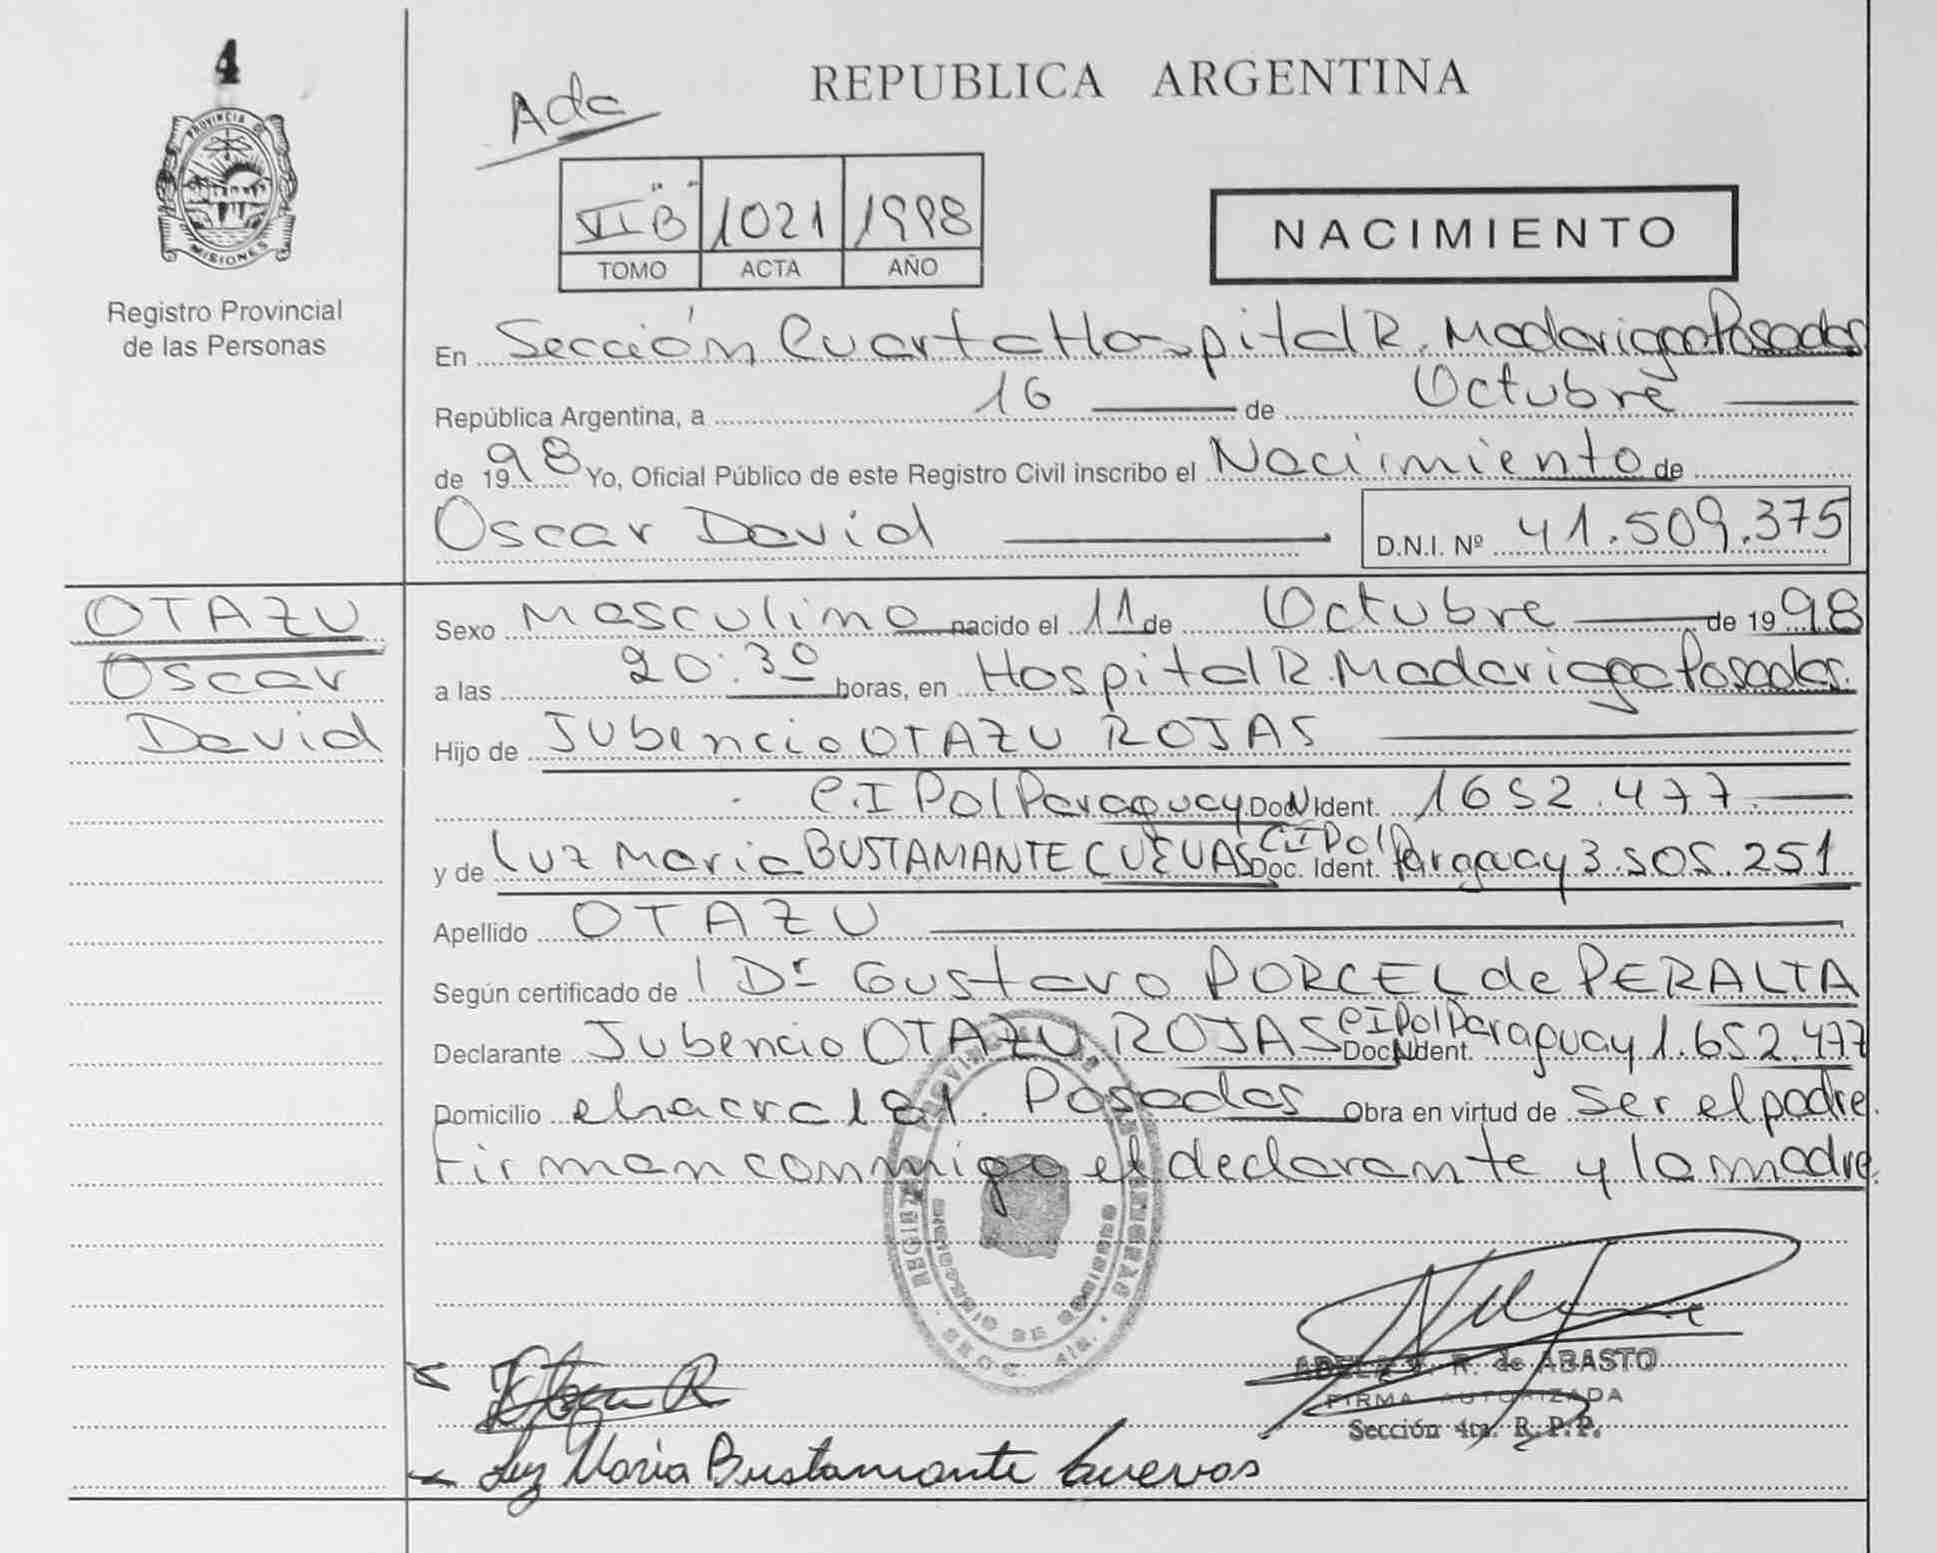 4
PROVINCIA DE
MISIONES
Registro Provincial
de las Personas
Ada
REPUBLICA ARGENTINA
VII B 1021 1998
TOMO ACTA AÑO
NACIMIENTO
En Sección Cuarta Hospital R. Madariaga Posadas
República Argentina, a 16 de Octubre
de 1998 Yo, Oficial Público de este Registro Civil inscribo el Nacimiento de
Oscar David D.N.I. Nº 41.509.375
OTAZU
Oscar
David
Sexo Masculino nacido el 11 de Octubre de 1998
a las 20:30 horas, en Hospital R. Madariaga Posadas.
Hijo de Jubencio OTAZU ROJAS
C.I Pol Paraguay Doc N Ident. 1652.477.
y de Luz Maria BUSTAMANTE CUEVAS Doc. Ident. CI Pol Pargauay 3.505.251
Apellido OTAZU
Según certificado de l Dr Gustavo PORCEL de PERALTA
Declarante Jubencio OTAZU ROJAS Doc N Ident. CI Pol Paraguay 1.652.477
Domicilio chacra 181. Posadas Obra en virtud de ser el padre.
Firman conmigo el declarante y la madre.
SECC. 4ta.
ADELA R. de ABASTO
FIRMA AUTORIZADA
Sección 4ta. R.P.P.
Luz Maria Bustamante Cuevas